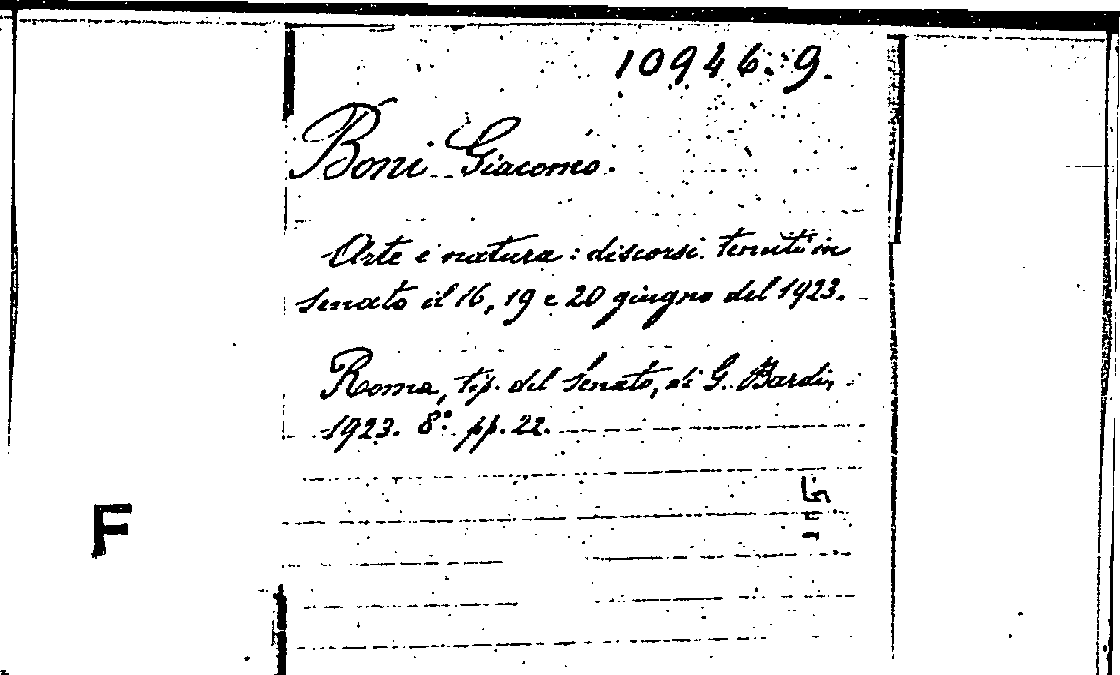 10946.9.
Boni Giacomo.
Arte e natura : discorsi tenuti in
Senato il 16, 19 e 20 giugno del 1923.
Roma, tip. del Senato, di G. Bardi,
1923. 8° pp. 22.
F